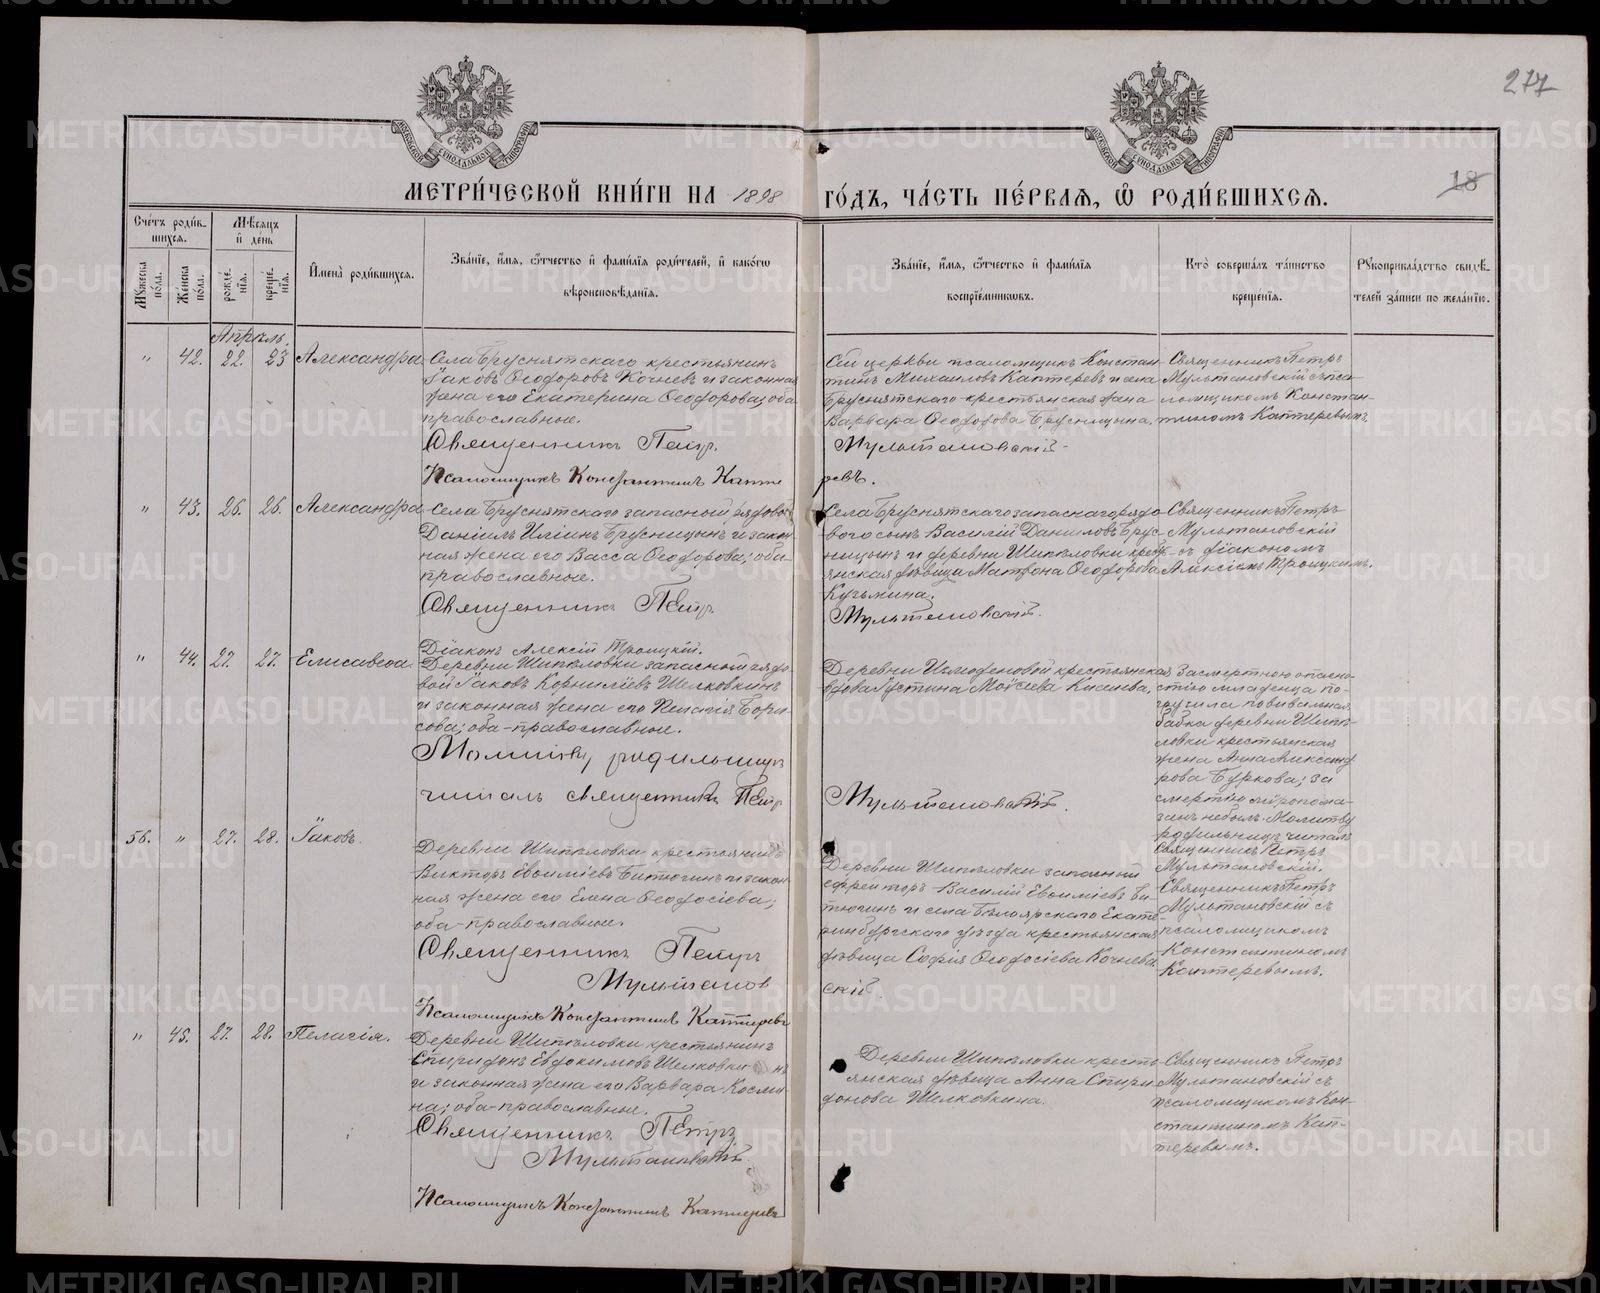 277
18
МЕТРИ́ЧЕСКОЙ КНИ́ГИ НА 1898 ГО́ДЪ, ЧА́СТЬ ПЕ́РВАЯ, Ѿ РОДИ́ВШИХСЯ.
МОСКОВСКОЙ СѴНОДАЛЬНОЙ ТИПОГРАФІИ
МОСКОВСКОЙ СѴНОДАЛЬНОЙ ТИПОГРАФІИ
Сче́тъ роди́в-
шихся.
Мѣ́сяцъ
и҆ де́нь
Му́жеска по́ла.
Же́нска по́ла.
рожде́-
нїя.
креще́-
нїя.
И҆мена̀ роди́вшихся.
Зва́нїе, и҆́мя, ѻ҆́тчество и҆ фами́лїя роди́телей, и҆ како́гѡ
вѣроисповѣ́данїя.
Зва́нїе, и҆́мя, ѻ҆́тчество и҆ фами́лїя
воспрїе́мникѡвъ.
Кто̀ соверша́лъ та́инство
креще́нїя.
Рꙋкоприкла́дство свидѣ́-
телей за́писи по жела́нїю.
Апрѣль.
" 42. 22. 23 Александра
Села Бруснятскаго крестьянинъ
Іаковъ Ѳеодоровъ Кочневъ и законная
жена его Екатерина Ѳеодорова; оба
православные.
Священникъ Петръ
Псаломщикъ Константинъ Капте
Сей церкви псаломщикъ Констан-
тинъ Михаиловъ Каптеревъ и села
Бруснятскаго крестьянская жена
Варвара Ѳеодорова Брусницына.
Мультановскій
ревъ.
Священникъ Петръ
Мультановскій съ пса-
ломщикомъ Констан-
тиномъ Каптеревымъ.
" 43. 26. 26. Александра
Села Бруснятскаго запасный рядовой
Даніилъ Иліинъ Брусницынъ и закон-
ная жена его Васса Ѳеодорова; оба
православные.
Священникъ Петръ
Діаконъ Алексій Троицкій.
Села Бруснятскаго запаснаго рядо-
вого сынъ Василій Даниловъ Брус-
ницынъ и деревни Шипѣловки кресть-
янская дѣвица Матрона Ѳеодорова
Кузьмина.
Мультановскій.
Священникъ Петръ
Мультановскій
съ діакономъ
Алексіемъ Троицкимъ.
" 44. 27. 27. Елисавета.
Деревни Шипѣловки запасный рядо-
вой Іаковъ Корниліевъ Шелковкинъ
и законная жена его Пелагія Бори-
сова; оба православные.
Молитву родильницѣ
читалъ священникъ Петр
Деревни Измоденовой крестьянская
вдова Іустина Моисеева Киселева.
Мультановскій.
За смертною опасно-
стію младенца по-
грузила повивальная
бабка деревни Шипѣ-
ловки крестьянская
жена Анна Александ-
рова Буркова; за
смертію мѵропома-
занъ небылъ. Молитву
родильницѣ читалъ
священникъ Петръ
Мультановскій.
56. " 27. 28. Іаковъ.
Деревни Шипѣловки крестьянинъ
Викторъ Евѳиміевъ Битюгинъ и закон-
ная жена его Елена Ѳеодосіева;
оба православные.
Священникъ Петръ
Мультанов
Псаломщикъ Константинъ Каптеревъ
Деревни Шипѣловки запасный
ефрейторъ Василій Евѳиміевъ Би-
тюгинъ и села Бѣлоярскаго Екате-
ринбургскаго уѣзда крестьянская
дѣвица Софія Ѳеодосіева Кочнева.
скій.
Священникъ Петръ
Мультановскій съ
псаломщикомъ
Константиномъ
Каптеревымъ.
" 45. 27. 28. Пелагія.
Деревни Шипѣловки крестьянинъ
Спиридонъ Евдокимовъ Шелковкинъ
и законная жена его Варвара Косми-
на; оба православные.
Священникъ Петръ
Мультановскій.
Псаломщикъ Константинъ Каптеревъ
Деревни Шипѣловки кресть-
янская дѣвица Анна Спири-
донова Шелковкина.
Священникъ Петръ
Мультановскій съ
псаломщикомъ Кон-
стантиномъ Кап-
теревымъ.
METRIKI.GASO-URAL.RU